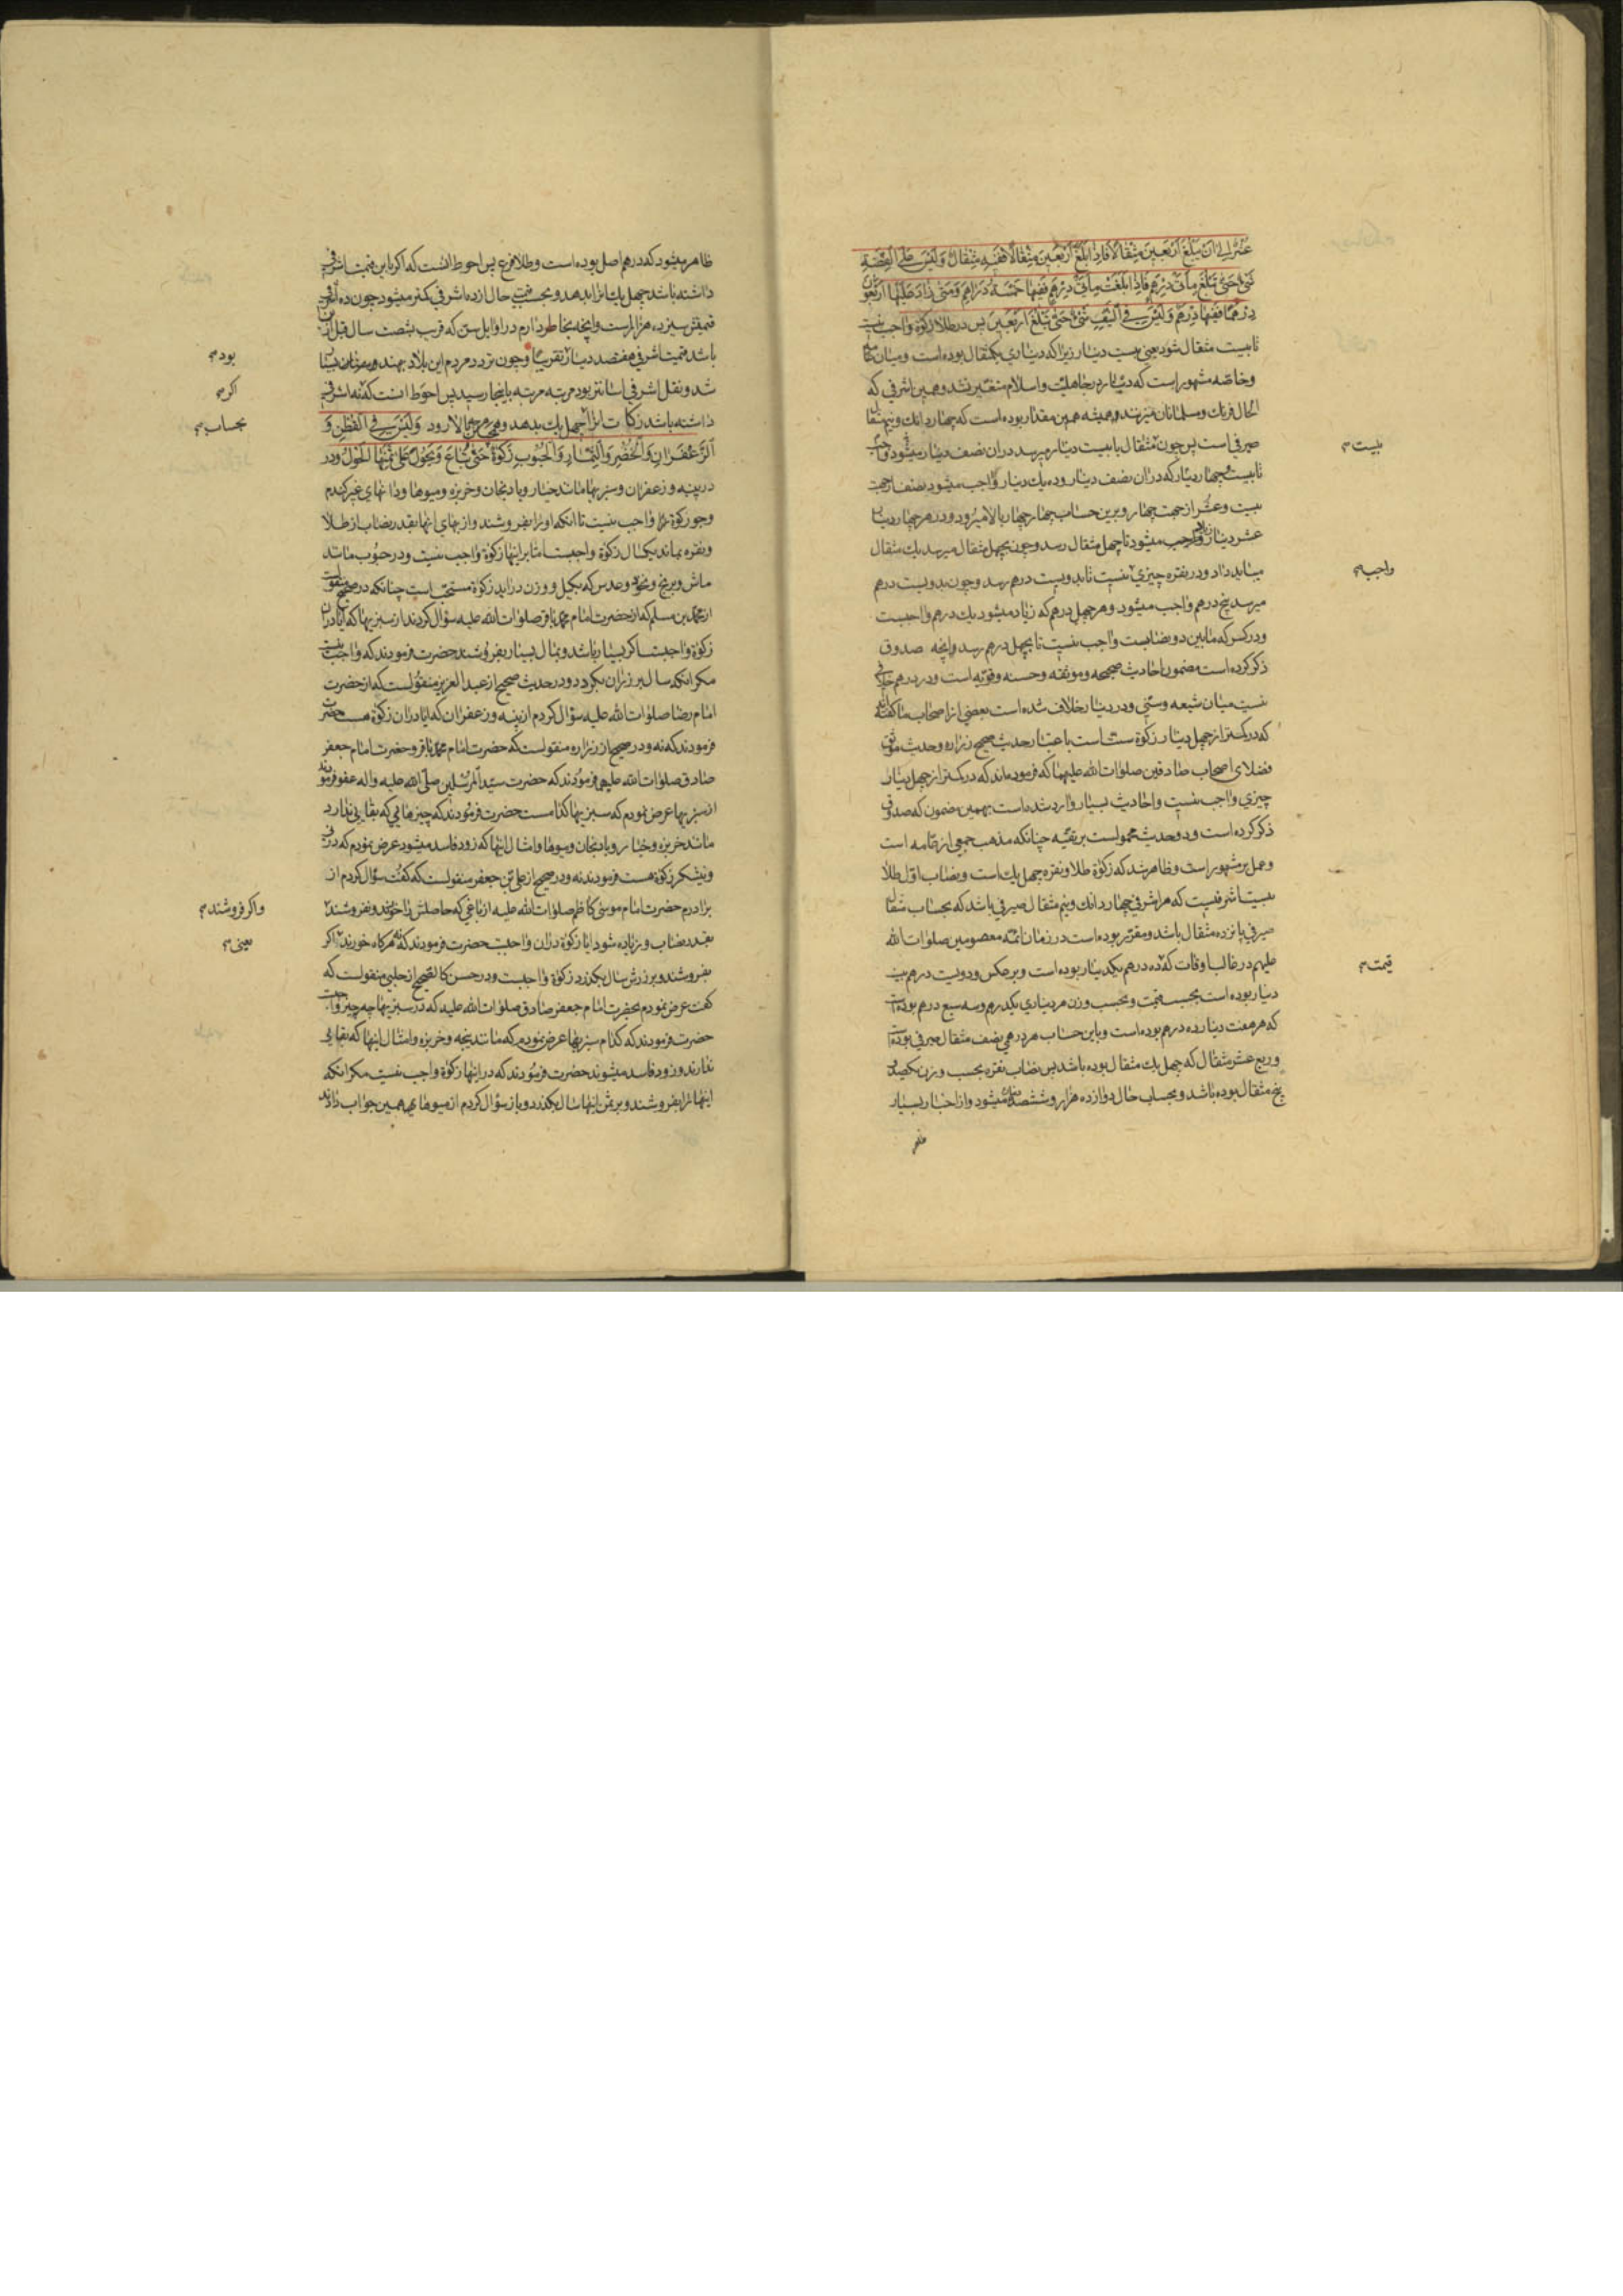 عُشْرٌ اِلی اَنْ یَبْلُغَ اَرْبَعینَ مِثْقالاً فَاِذا بَلَغَ اَرْبَعینَ مِثْقالاً فَفیهِ مِثْقالٌ وَلَیْسَ عَلَی الْفِضَّةِ
شَیْءٌ حَتّی تَبْلُغَ مِأتَیْ دِرْهَمٍ فَاِذا بَلَغَتْ مِأتَیْ دِرْهَمٍ فَفیها خَمْسَةُ دَراهِمَ وَمَتی زادَ عَلَیْها اَرْبَعُونَ
دِرْهَماً فَفیها دِرْهَمٌ وَلَیْسَ فِی النَّیِّفِ شَیْءٌ حَتّی تَبْلُغَ اَرْبَعینَ پس در طلا زکوة واجب نیست
تا بیست مثقال شود یعنی بیست دینار زیرا که دیناری یکمثقال بوده است و میان عامه
و خاصّه مشهور است که دینار در جاهلیّت و اسلام متغیّر نشد و همین اشرفی که
الحال فرنك و مسلمانان میزنند و همیشه همین مقدار بوده است که چهار دانك و نیم مثقال
صیرفی است پس چون مثقال یا بیست دینار میرسد در ان نصف دینار میشود واجب
تا بیست و چهار دینار که در ان نصف دینار و ده یك دینار واجب میشود نصف از جهت
بیست و عُشر از جهت چهار و برین حساب چهار چهار بالا میرود و در هر چهار دینار
عشر دینار زیاد واجب میشود تا چهل مثقال رسد و چون بچهل مثقال میرسد یك مثقال
میباید داد و در نقره چیزی نیست تا بدویست درهم رسد و چون بدویست درهم
میرسد پنج درهم واجب میشود و هر چهل درهم که زیاد میشود یك درهم واجبست
و در کسر که مابین دو نصابست واجب نیست تا بچهل درهم رسد و انچه صدوق
ذکر کرده است مضمون احادیث صحیحه و موثقه و حسنه و قویّه است و در درهم خلافی
نیست میان شیعه و سنّی و در دینار خلاف شده است بعضی از اصحاب ما گفته‌اند
که در کمتر از چهل دینار زکوة سنّت است باعتبار حدیث صحیح زراره و حدیث موثق
فضلای اصحاب صادقین صلوات الله علیهما که فرموده‌اند که در کمتر از چهل دینار
چیزی واجب نیست و احادیث بسیار وارد شده است بهمین مضمون که صدوق
ذکر کرده است و دو حدیث محمولست بر تقیّه چنانکه مذهب جمعی از عامه است
و عمل بر مشهور است و ظاهر شد که زکوة طلا و نقره چهل یك است و نصاب اوّل طلا
بیست اشرفیست که هر اشرفی چهار دانك و نیم مثقال صیرفی باشد که بحساب مثقال
صیرفی پانزده مثقال باشد و مقرّر بوده است در زمان ائمّه معصومین صلوات الله
علیهم در غالب اوقات که ده درهم بیکدینار بوده است و برعکس و دویست درهم بیست
دینار بوده است بحسب قیمت و بحسب وزن هر دیناری یکدرهم و سه سبع درهم بوده است
که هر هفت دینار ده درهم بوده است و باین حساب هر درهمی نصف مثقال صیرفی بوده است
و ربع عشر مثقال که چهل یك مثقال بوده باشد پس نصاب نقره بحسب وزن یکصد و
پنج مثقال بوده باشد و بحساب حال دوازده هزار و ششصد دینار میشود و از اخبار بسیار
ظاهر
بیست
واجب
قیمت
ظاهر میشود که درهم اصل بوده است و طلا فرع پس احوط انست که اگر باین قیمت اشرفی
داشته باشد چهل یك انرا بدهد و بحسب قیمت حال از ده اشرفی کمتر میشود چون ده اشرفی
قیمتش سیزده هزار است و انچه بخاطر دارم در اوایل سن که قریب بشصت سال قبل ازین
باشد قیمت اشرفی هفتصد دینار تقریبا و چون تردد مردم این بلاد بهند و بسیار
شد و نقل اشرفی اسانتر بود مرتبه مرتبه باینجا رسید پس احوط انست که نه اشرفی
داشته باشد زکات انرا چهل یك بدهد و بالا رود وَلَیْسَ فِی الْقُطْنِ وَ
الزَّعْفَرانِ وَالْخُضَرِ وَالثِّمارِ وَالْحُبُوبِ زَکوةٌ حَتّی تُباعَ وَیَحُولَ عَلی ثَمَنِهَا الْحَوْلُ و در
در پنبه و زعفران و سبزیها مانند خیار و بادنجان و خربزه و میوها و دانهای غیر گندم
و جو زکوة واجب نیست تا انکه اورا بفروشند و از بهای انها بقدر نصاب از طلا
و نقره بماند یکسال زکوة واجبست اما بر اینها زکوة واجب نیست و در حبوب مانند
ماش و برنج و نخود و عدس که بکیل و وزن دراید زکوة مستحبّ است چنانکه در صحیح منقولست
از محمد بن مسلم که از حضرت امام محمد باقر صلوات الله علیه سؤال کردند از سبزیها که ایا در ان
زکوة واجبست اگر بسیار باشد و بمال بسیار بفروشند حضرت فرمودند که واجب نیست
مگر انکه سال بر زر ان بگردد و در حدیث صحیح از عبد العزیز منقولست که از حضرت
امام رضا صلوات الله علیه سؤال کردم از پنبه و زعفران که ایا در ان زکوة هست حضرت
فرمودند که نه و در صحیح از زراره منقولست که حضرت امام محمد باقر و حضرت امام جعفر
صادق صلوات الله علیهما فرمودند که حضرت سیّد المرسلین صلّی الله علیه و اله عفو فرمودند
از سبزیها عرض نمودم که سبزیها کدامست حضرت فرمودند که چیزهایی که بقایی ندارد
مانند خربزه و خیار و بادنجان و میوها و امثال اینها که زود فاسد میشود عرض نمودم که در
و نیشکر زکوة هست فرمودند نه و در صحیح از علی بن جعفر منقولست که گفت سؤال کردم از
برادرم حضرت امام موسی کاظم صلوات الله علیه از باغی که حاصلش را خورند و نفروشند
بقدر نصاب و زیاده شود ایا زکوة در ان واجبست حضرت فرمودند که نه هرگاه خورند اگر
بفروشند و بر زرش سال بگذرد زکوة واجبست و در حسن کالصحیح از حلبی منقولست که
گفت عرض نمودم بحضرت امام جعفر صادق صلوات الله علیه که در سبزیها چه چیز واجبست
حضرت فرمودند که کدام سبزیها عرض نمودم که مانند بیجه و خربزه و امثال اینها که بقایی
ندارند و زود فاسد میشوند حضرت فرمودند که در اینها زکوة واجب نیست مگر انکه
اینها را بفروشند و بر ثمن اینها سال بگذرد و باز سؤال کردم از میوها همین جواب دادند
بود
اگر
بحساب
واگر فروشند
یعنی